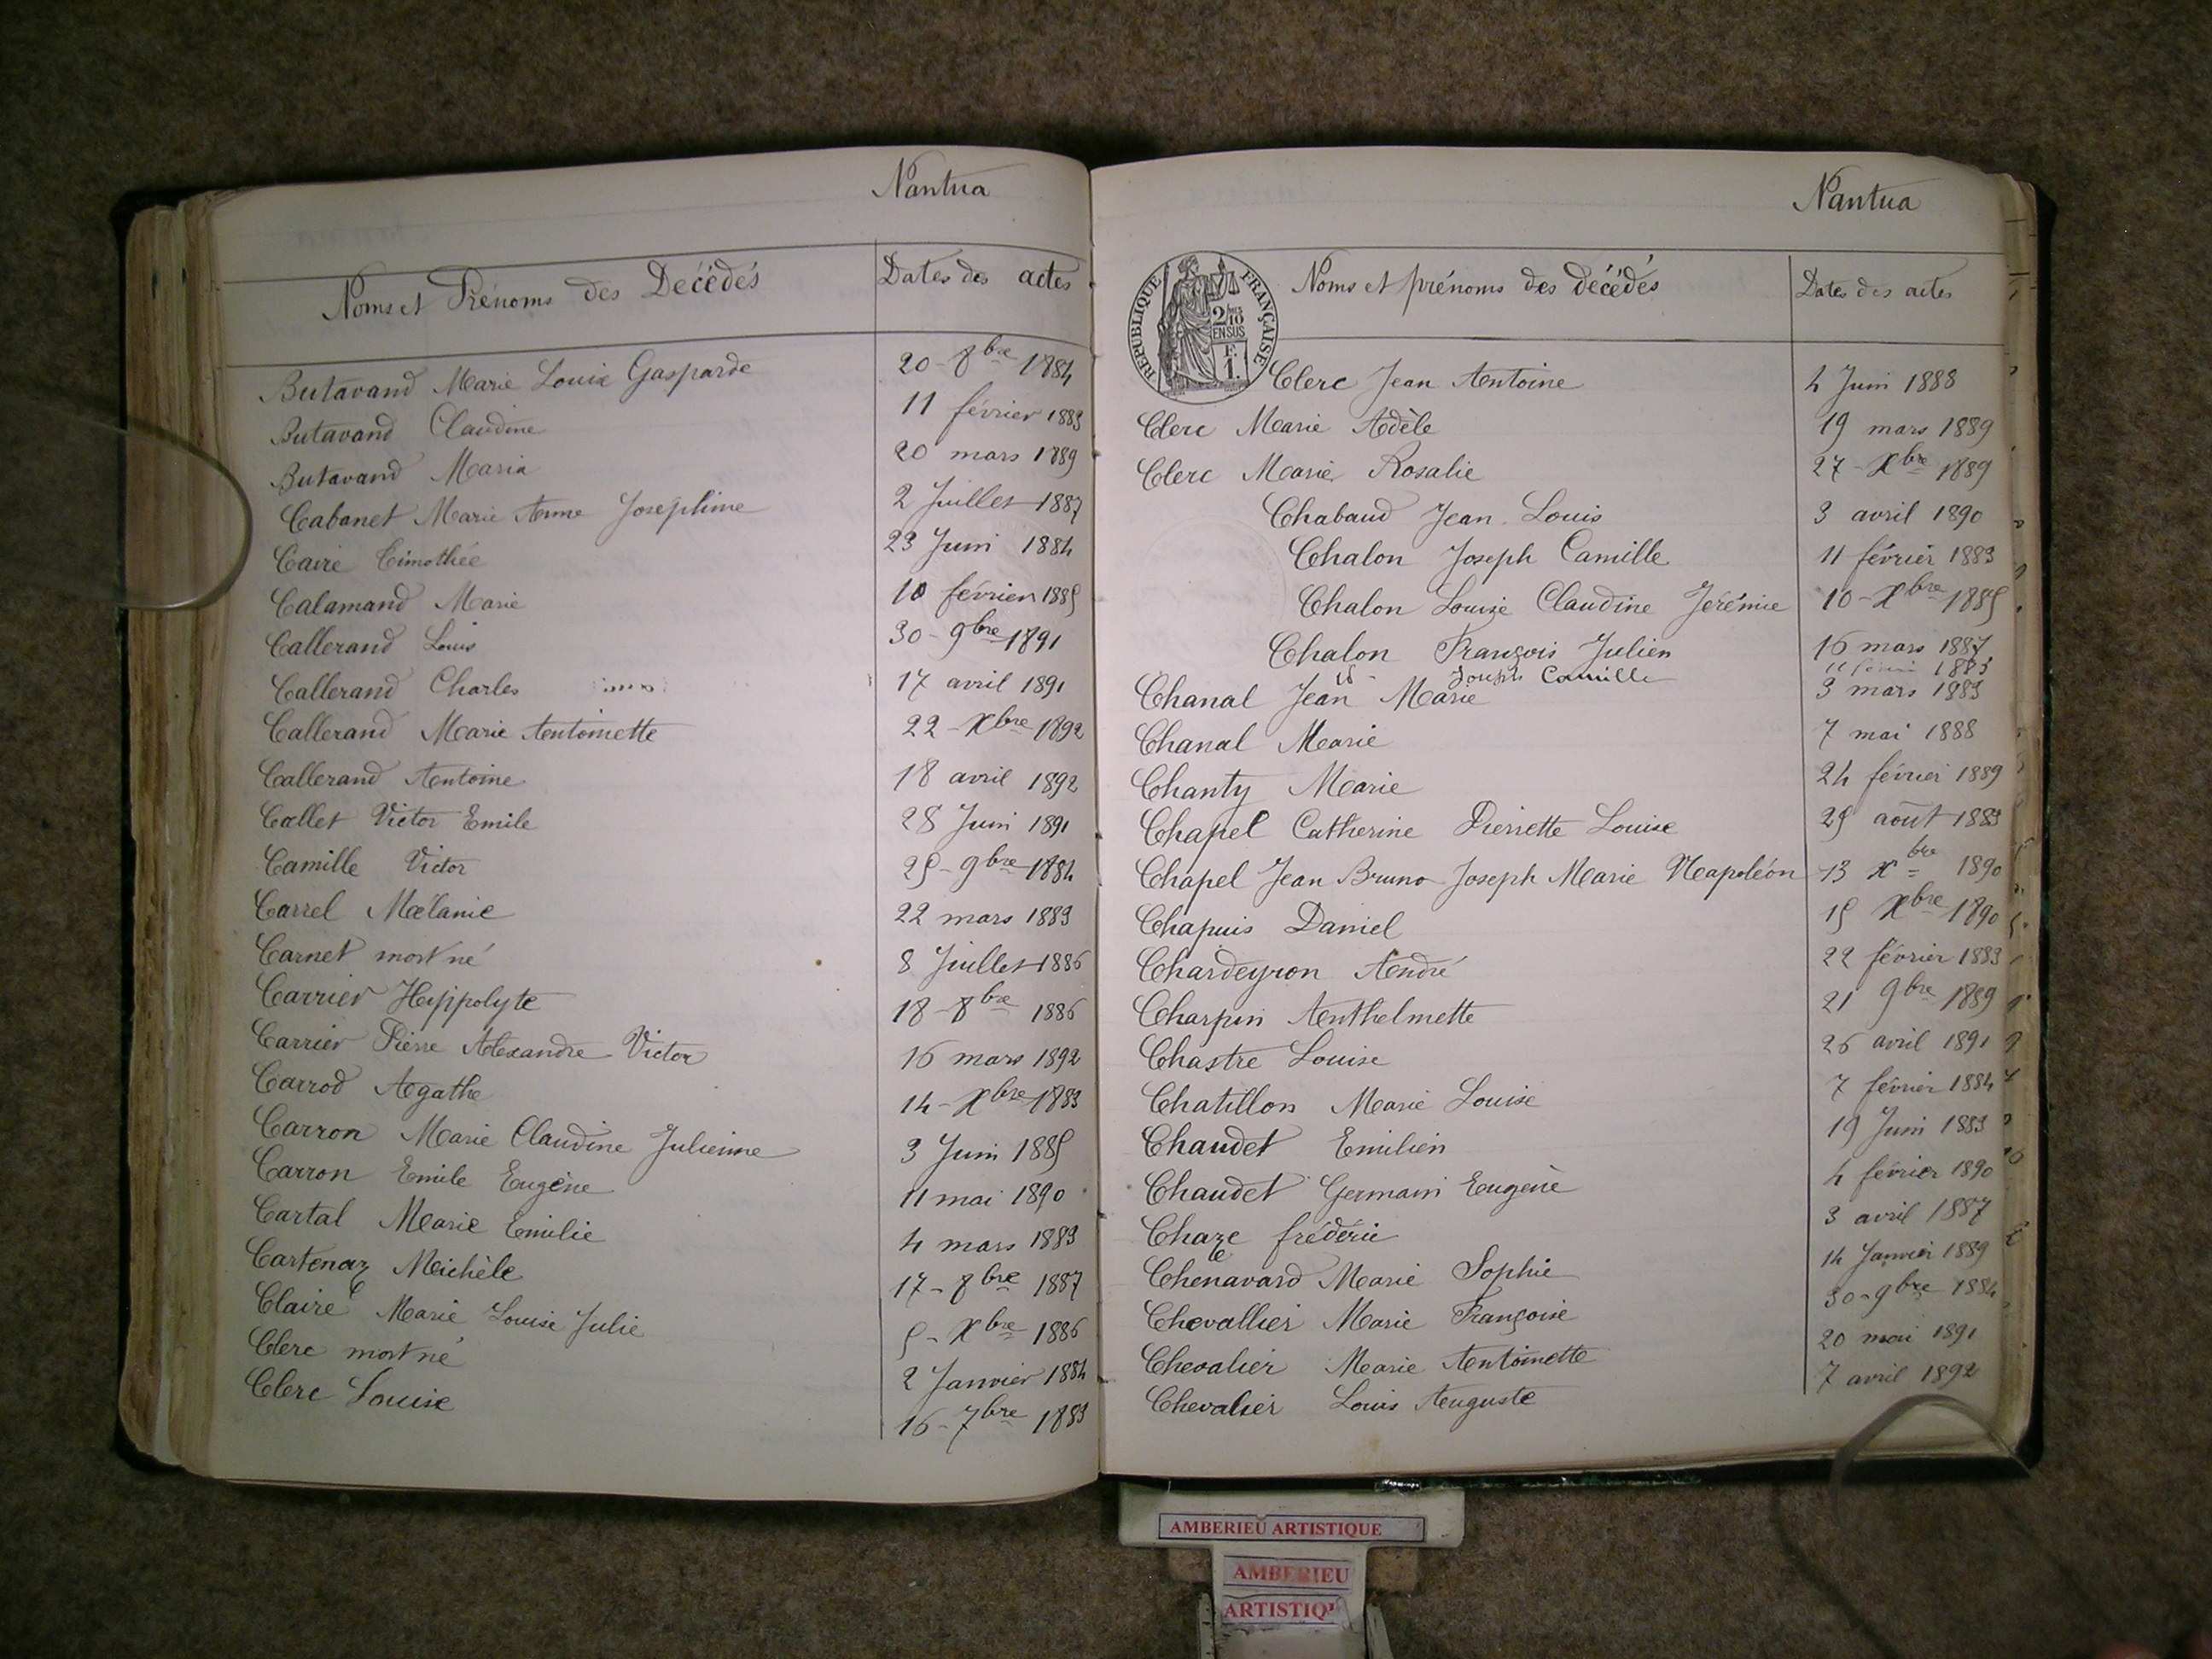 Nantua
Noms et Prénoms des Décédés Dates des actes
Butavand Marie Louise Gasparde 20 - 8bre 1884
Butavand Claudine 11 février 1883
Butavand Maria 20 mars 1889
Cabanet Marie Anne Josephine 2 Juillet 1887
Caire Timothée 23 Juin 1884
Calamand Marie 10 février 1885
Callerand Louis 30 - 9bre 1891
Callerand Charles 17 avril 1891
Callerand Marie Antoinette 22 - Xbre 1892
Callerand Antoine 18 avril 1892
Callet Victor Emile 28 Juin 1891
Camille Victor 25 - 9bre 1884
Carrel Mélanie 22 mars 1883
Carnet mort né 8 Juillet 1886
Carrier Hyppolyte 18 - 8bre 1886
Carrier Pierre Alexandre Victor 16 mars 1892
Carrod Agathe 14 - Xbre 1883
Carron Marie Claudine Julienne 3 Juin 1885
Carron Emile Eugène 11 mai 1890
Cartal Marie Emilie 4 mars 1883
Cartenaz Michèle 17 - 8bre 1887
Claire Marie Louise Julie 5 - Xbre 1886
Clerc mort né 2 Janvier 1884
Clerc Louise 16 - 7bre 1883
Nantua
Noms et prénoms des décédés Dates des actes
RÉPUBLIQUE FRANÇAISE
2/10
EN SUS
F.
1.
Clerc Jean Antoine 4 Juin 1888
Clerc Marie Adèle 19 mars 1889
Clerc Marie Rosalie 27 - Xbre 1889
Chabaud Jean Louis 3 avril 1890
Chalon Joseph Camille 11 février 1883
Chalon Louise Claudine Jérémie 10 - Xbre 1885
Chalon François Julien 16 mars 1887
id - Joseph Camille 11 février 1883
Chanal Jean Marie 3 mars 1883
Chanal Marie 7 mai 1888
Chanty Marie 24 février 1889
Chapel Catherine Pierrette Louise 25 août 1883
Chapel Jean Bruno Joseph Marie Napoléon 13 Xbre 1890
Chapuis Daniel 15 Xbre 1890
Chardeyron André 22 février 1883
Charpin Anthelmette 21 9bre 1889
Chastre Louise 26 avril 1891
Chatillon Marie Louise 7 février 1884
Chaudet Emilien 19 Juin 1883
Chaudet Germain Eugène 4 février 1890
Chaze frédéric 3 avril 1887
Chenavard Marie Sophie 14 Janvier 1889
Chevallier Marie Françoise 30 - 9bre 1884
Chevalier Marie Antoinette 20 mai 1891
Chevalier Louis Auguste 7 avril 1892
AMBERIEU ARTISTIQUE
AMBERIEU
ARTISTIQU